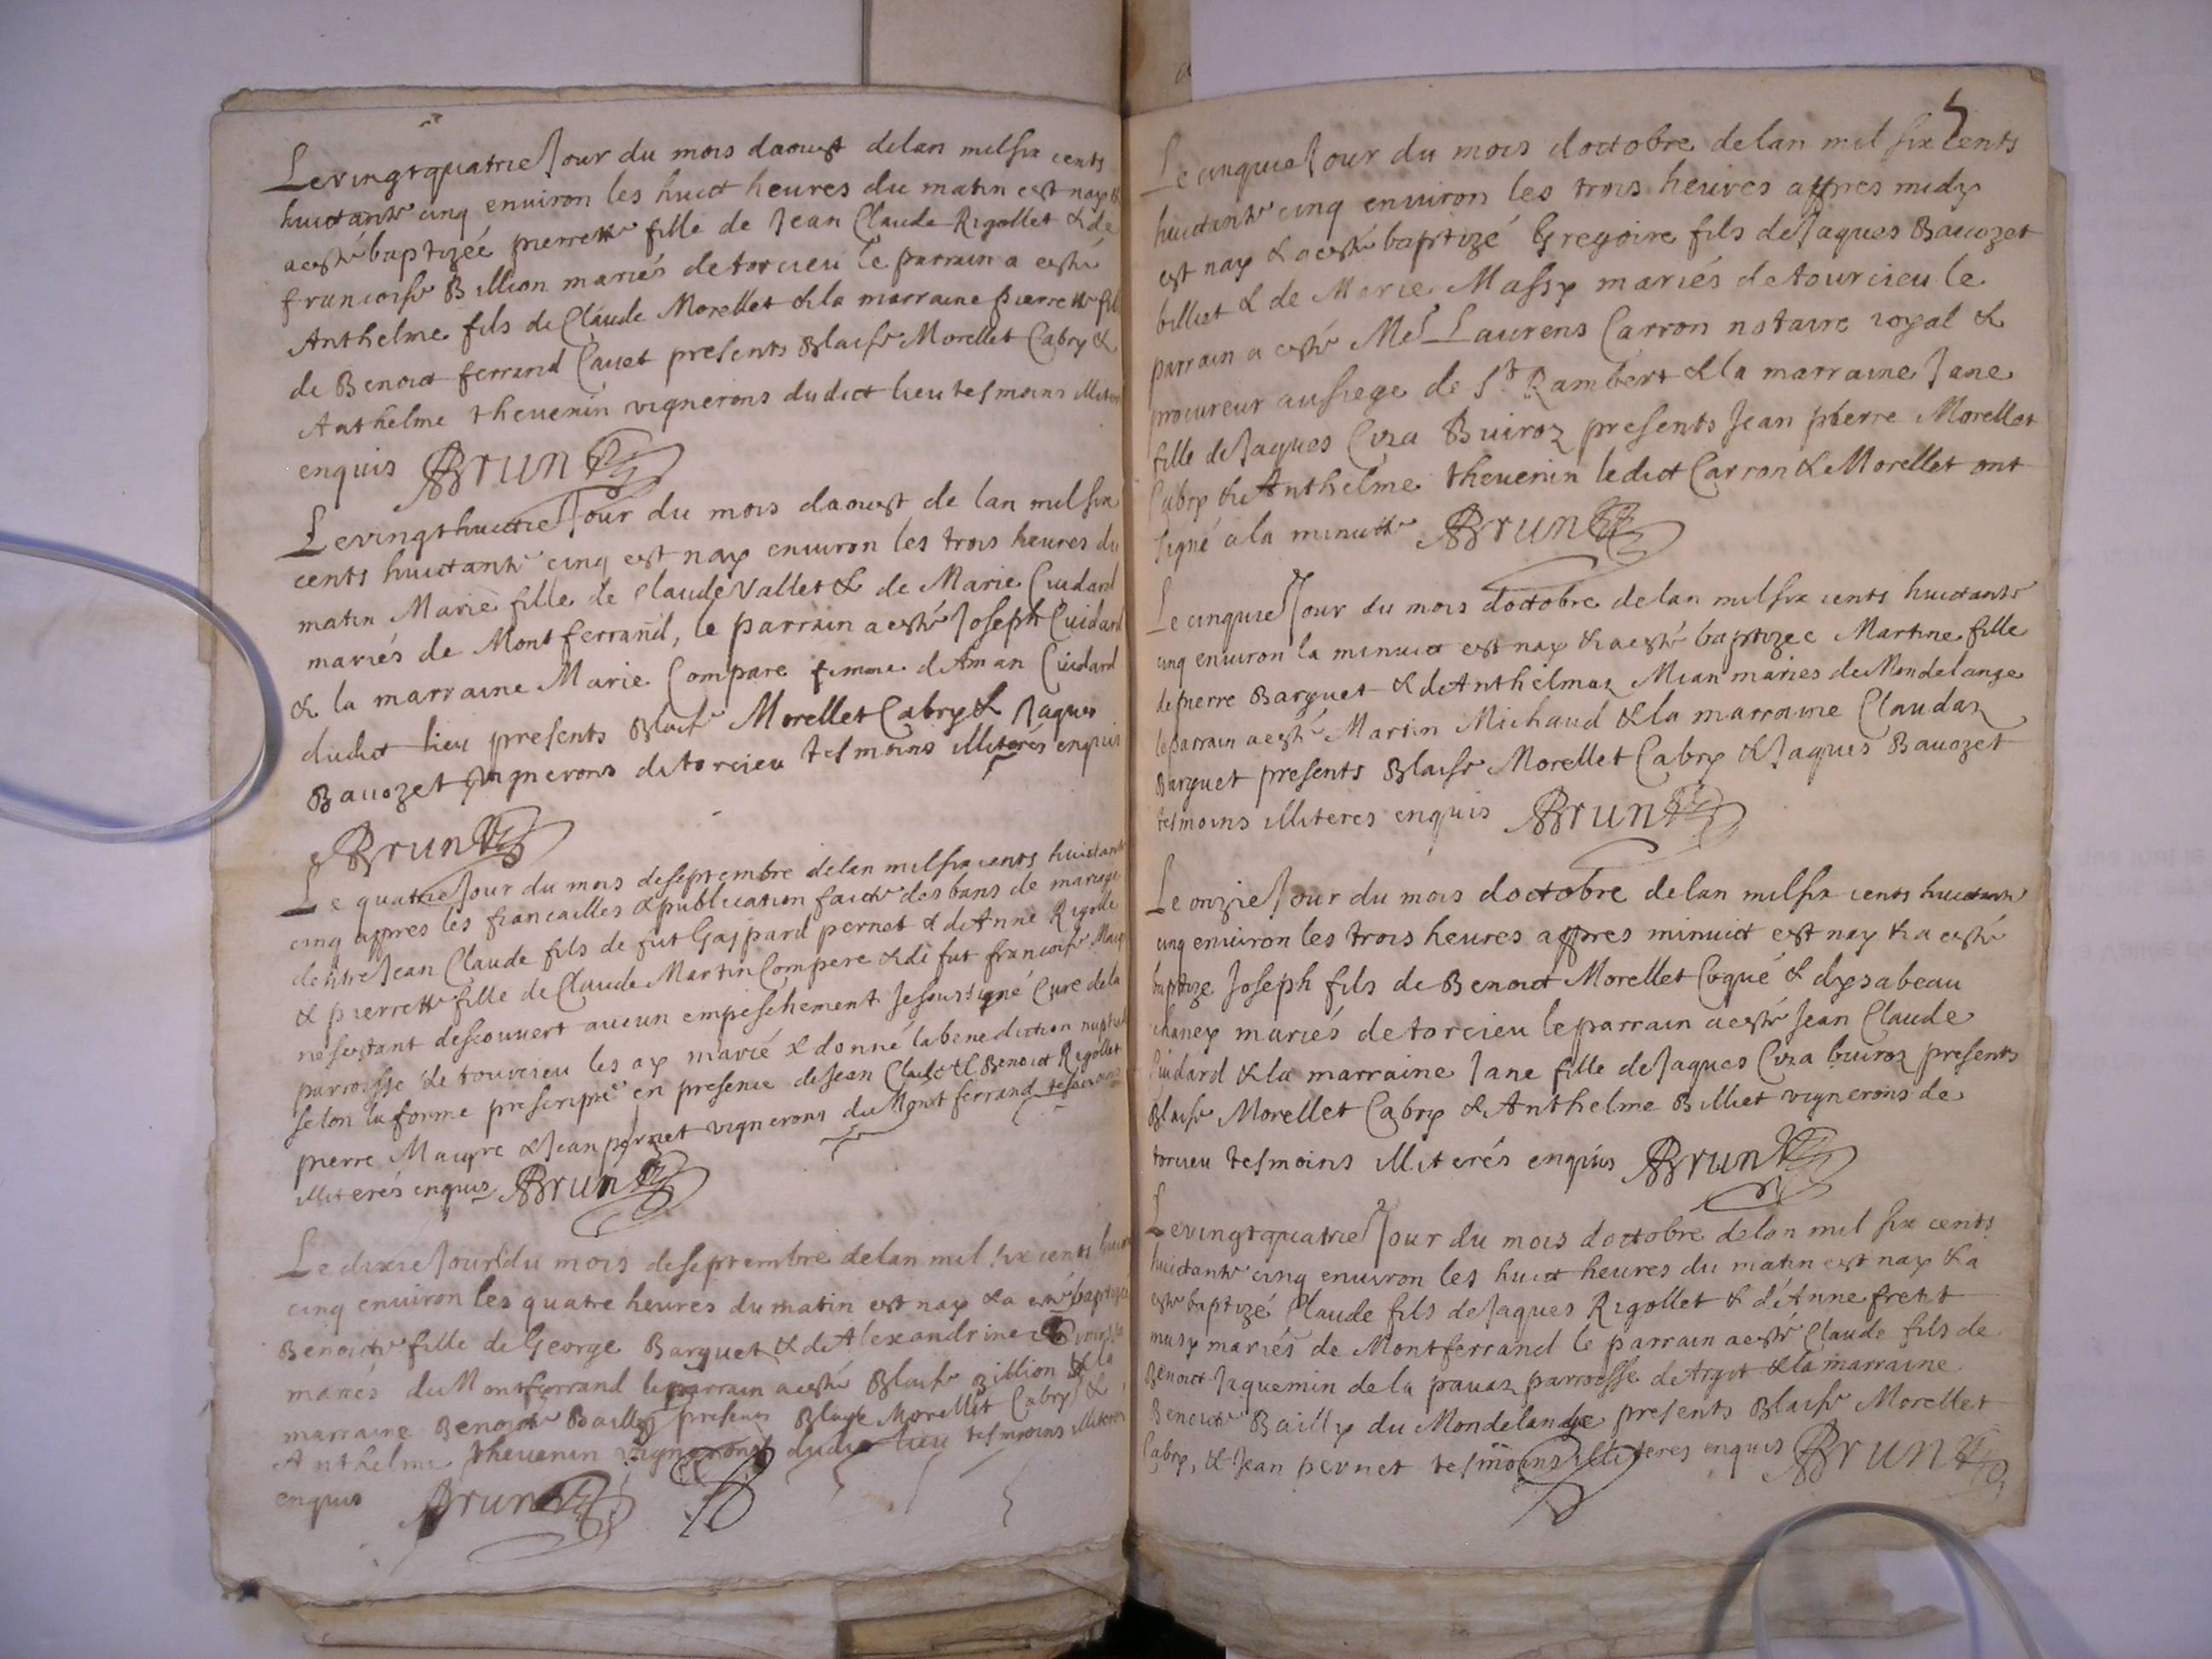 Le vingtquatrie Jour du mois daoust delan mil six cents
huictante cinq environ les huict heures du matin est nay &
a esté baptizéé pierrette fille de Jean Claude Rigollet & de
francoise Billion mariés de torcieu le parrain a esté
Anthelme fils de Claude Morellet & la marraine pierrette fil
de Benoict ferrand Cauet presents Blaise Morellet Cabry &
Anthelme theuenin vignerons dudict lieu tesmoins illiteré
enquis Brun
Le vingthuictie Jour du mois daoust de lan mil six
cents huictante cinq est nay environ les trois heures du
matin Marie fille de Claude Vallet & de Marie Cuidard
mariés de Montferrand, le parrain a esté Joseph Cuidard
& la marraine Marie Compare femme dAman Cuidard
dudict lieu presents Blaise Morellet Cabry & Jaques
Bauozet vignerons de torcieu tesmoins illiterés enquis
Brun
Le quatrie Jour du mois de septembre delan mil six cents huictante
cinq appres les fiancailles & publication faicte des bans de mariage
dentre Jean Claude fils de fut Gaspard pernet & de Anne Rigolle
& pierrette fille de Claude Martin Compere & de fut francoise Maig
ne sestant descouuert aucun empeschement Je soussigné Curé de la
parroisse de tourcieu les ay marié & donné la benediction nuptial
selon la forme prescripte en presence de Jean Claude & Benoict Rigollet
pierre Maigre & Jean pernet vignerons du Montferrand tesmoins
illiterés enquis Brun
Le dixie Jour du mois de septembre delan mil six cents huict
cinq environ les quatre heures du matin est nay & a esté baptizéé
Benoicte fille de George Barquet & de Alexandrine
mariés du Montferrand le parrain a esté Blaise Billion & la
marraine Benoicte Bailly presents Blaise Morellet Cabry &
Anthelme theuenin vignerons dudict lieu tesmoins illiteres
enquis Brun
5
Le cinquie Jour du mois doctobre delan mil six Cents
huictante cinq environ les trois heures appres midy
est nay & a esté baptizé Gregoire fils de Jaques Bauozet
billiet & de Marie Massy mariés de tourcieu le
parrain a esté Me Laurens Carron notaire royal &
procureur au siege de St Rambert & la marraine Jane
fille de Jaques Cyza Buiroz presents Jean pierre Morellet
Cabry & Anthelme theuenin ledict Carron & Morellet ont
signé a la minutte Brun
Le cinquie Jour du mois doctobre delan mil six cents huictante
cinq environ la minuict est nay & a esté baptizee Martine fille
de pierre Barquet & de Anthelmaz Mian mariés du Mondelange
le parrain a esté Martin Michaud & la marraine Claudaz
Barquet presents Blaise Morellet Cabry & Jaques Bauozet
tesmoins illiteres enquis Brun
Le onzie Jour du mois doctobre delan mil six cents huictante
cinq environ les trois heures appres minuict est nay & a esté
baptize Joseph fils de Benoict Morellet Coqué & dysabeau
chaney mariés de torcieu le parrain a esté Jean Claude
Cuidard & la marraine Jane fille de Jaques Cyza buiroz presents
Blaise Morellet Cabry & Anthelme Billiet vignerons de
torcieu tesmoins illiterés enquis Brun
Le vingtquatrie Jour du mois doctobre delan mil six cents
huictante cinq environ les huict heures du matin est nay & a
esté baptizé Claude fils de Jaques Rigollet & dAnne fretit
musy mariés de Montferrand le parrain a esté Claude fils de
Benoict Jaquemin de la pauaz parroisse de Argit & la marraine
Benoicte Bailly du Mondelange presents Blaise Morellet
Cabry, & Jean pernet tesmoins illiteres enquis Brun